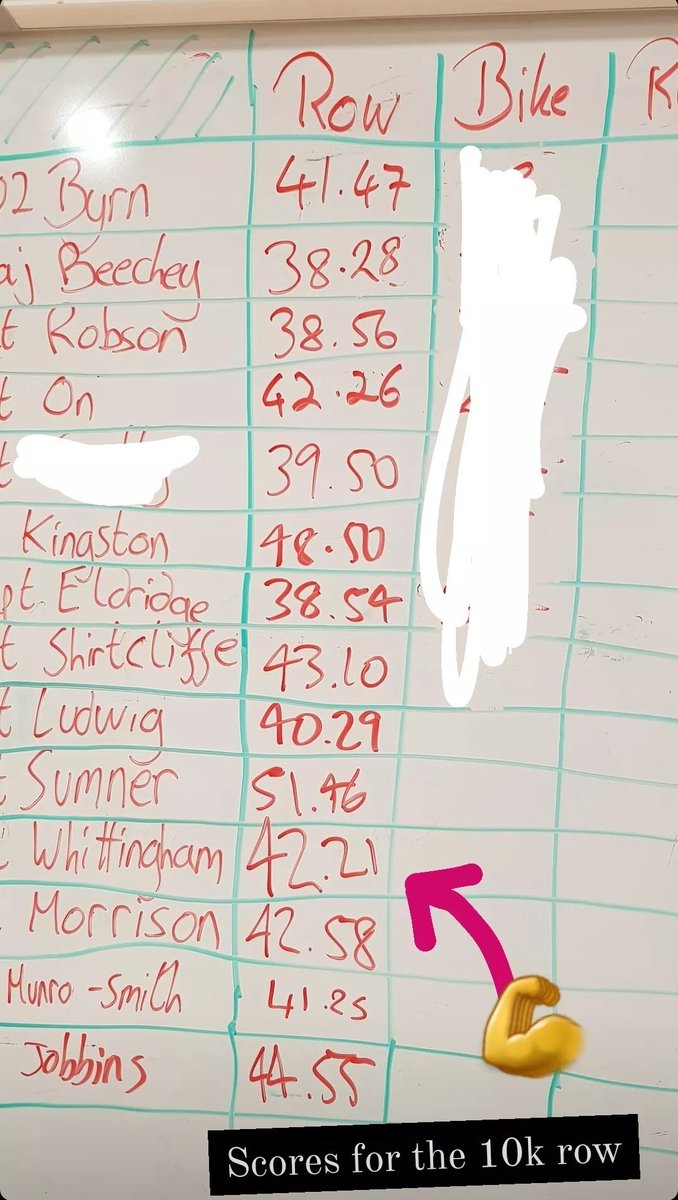 Row Bike R
02 Byrn 41.47
aj Beechey 38.28
t Robson 38.56
t On 42.26
t 39.50
Kingston 48.50
pt Eldridge 38.54
t Shirtcliffe 43.10
t Ludwig 40.29
t Sumner 51.46
t Whittingham 42.21
Morrison 42.58
Munro-Smith 41.25
Jobbins 44.55
Scores for the 10k row